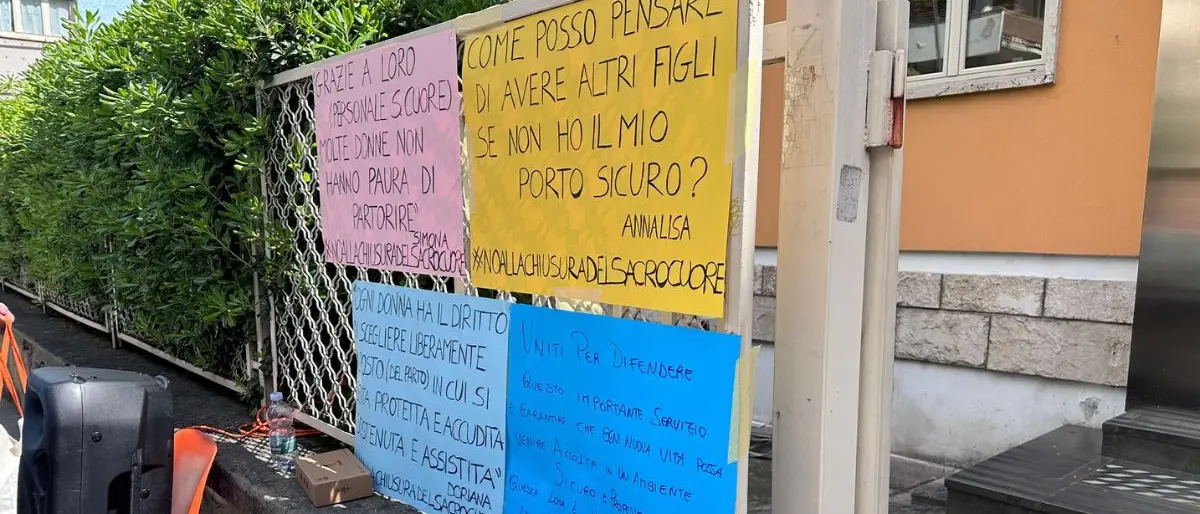 GRAZIE A LORO
(PERSONALE S. CUORE)
MOLTE DONNE NON
HANNO PAURA DI
PARTORIRE"
SIMONA
#NOALLACHIUSURADELSACROCUORE
COME POSSO PENSARE
DI AVERE ALTRI FIGLI
SE NON HO IL MIO
PORTO SICURO?
ANNALISA
#NOALLACHIUSURADELSACROCUORE
OGNI DONNA HA IL DIRITTO
SCEGLIERE LIBERAMENTE
(DEL PARTO) IN CUI SI
PROTETTA E ACCUDITA
E ASSISTITA"
DORIANA
UNITI PER DIFENDERE
QUESTO IMPORTANTE SERVIZIO
E GARANTIRE CHE OGNI NUOVA VITA POSSA
VENIRE ACCOLTA IN UN AMBIENTE
SICURO E
QUESTA